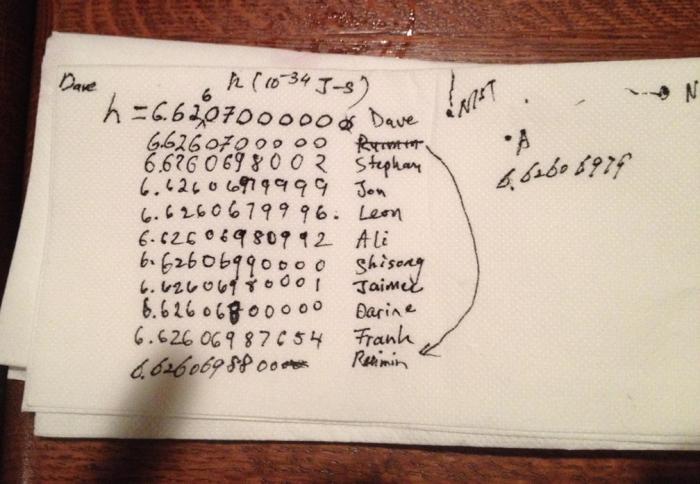 Dave
h (10-34 J-s)
h = 6.62607000000 Dave
6.6260700000 Ruimin
6.6260698002 Stephan
6.62606979999 Jon
6.62606799996. Leon
6.62606980992 Ali
6.62606990000 Shisong
6.62606980001 Jaimee
6.62606800000 Darine
6.62606987654 Frank
6.6260698800 Ruimin
NIST
N
A
6.62606979